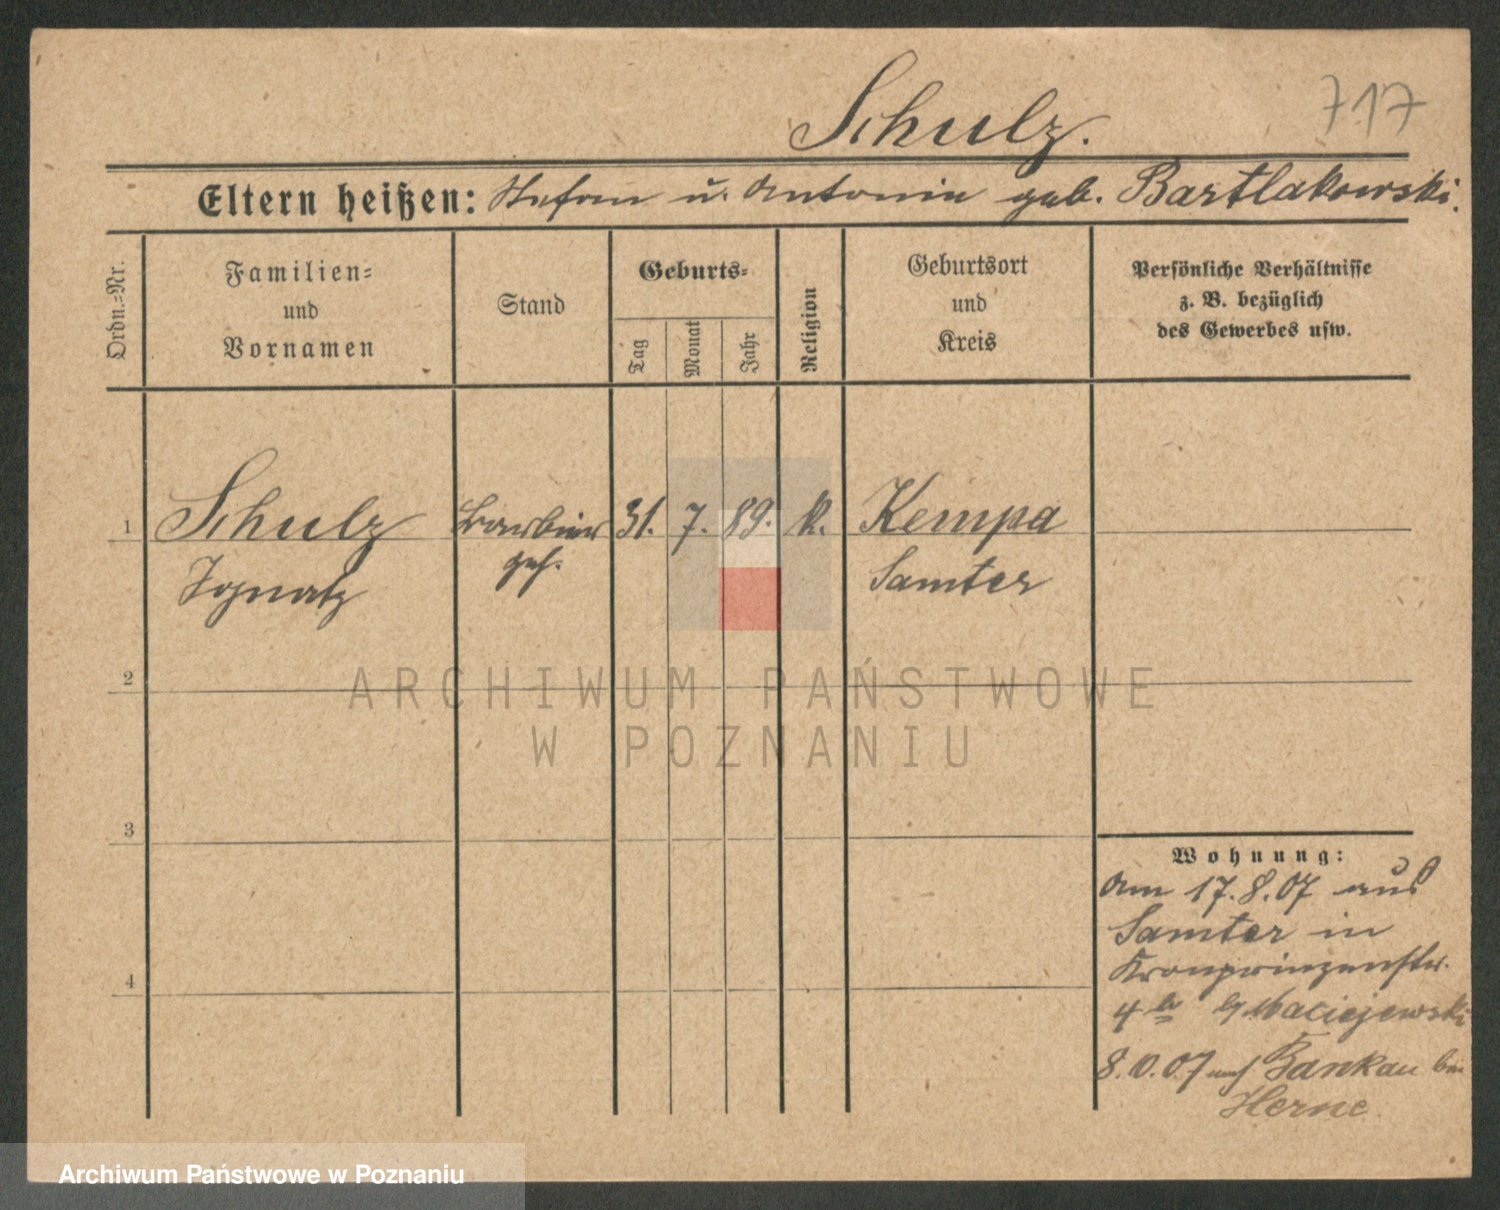 717
Schulz.
Eltern heißen: Stefan u. Antonie geb. Bartlakowski.
Ordn.-Nr.
Familien-
und
Vornamen
Stand
Geburts-
Tag
Monat
Jahr
Religion
Geburtsort
und
Kreis
Persönliche Verhältnisse
z. B. bezüglich
des Gewerbes usw.
1 Schulz Barbier 31. 7. 89. k. Kempa
Ignatz geh. Samter
ARCHIWUM PAŃSTWOWE
W POZNANIU
2
3
4
Wohnung:
Am 17.8.07 aus
Samter in
Kronprinzenstr.
4 b Maciejewski
8.10.07 nach Baukau bei
Herne
Archiwum Państwowe w Poznaniu